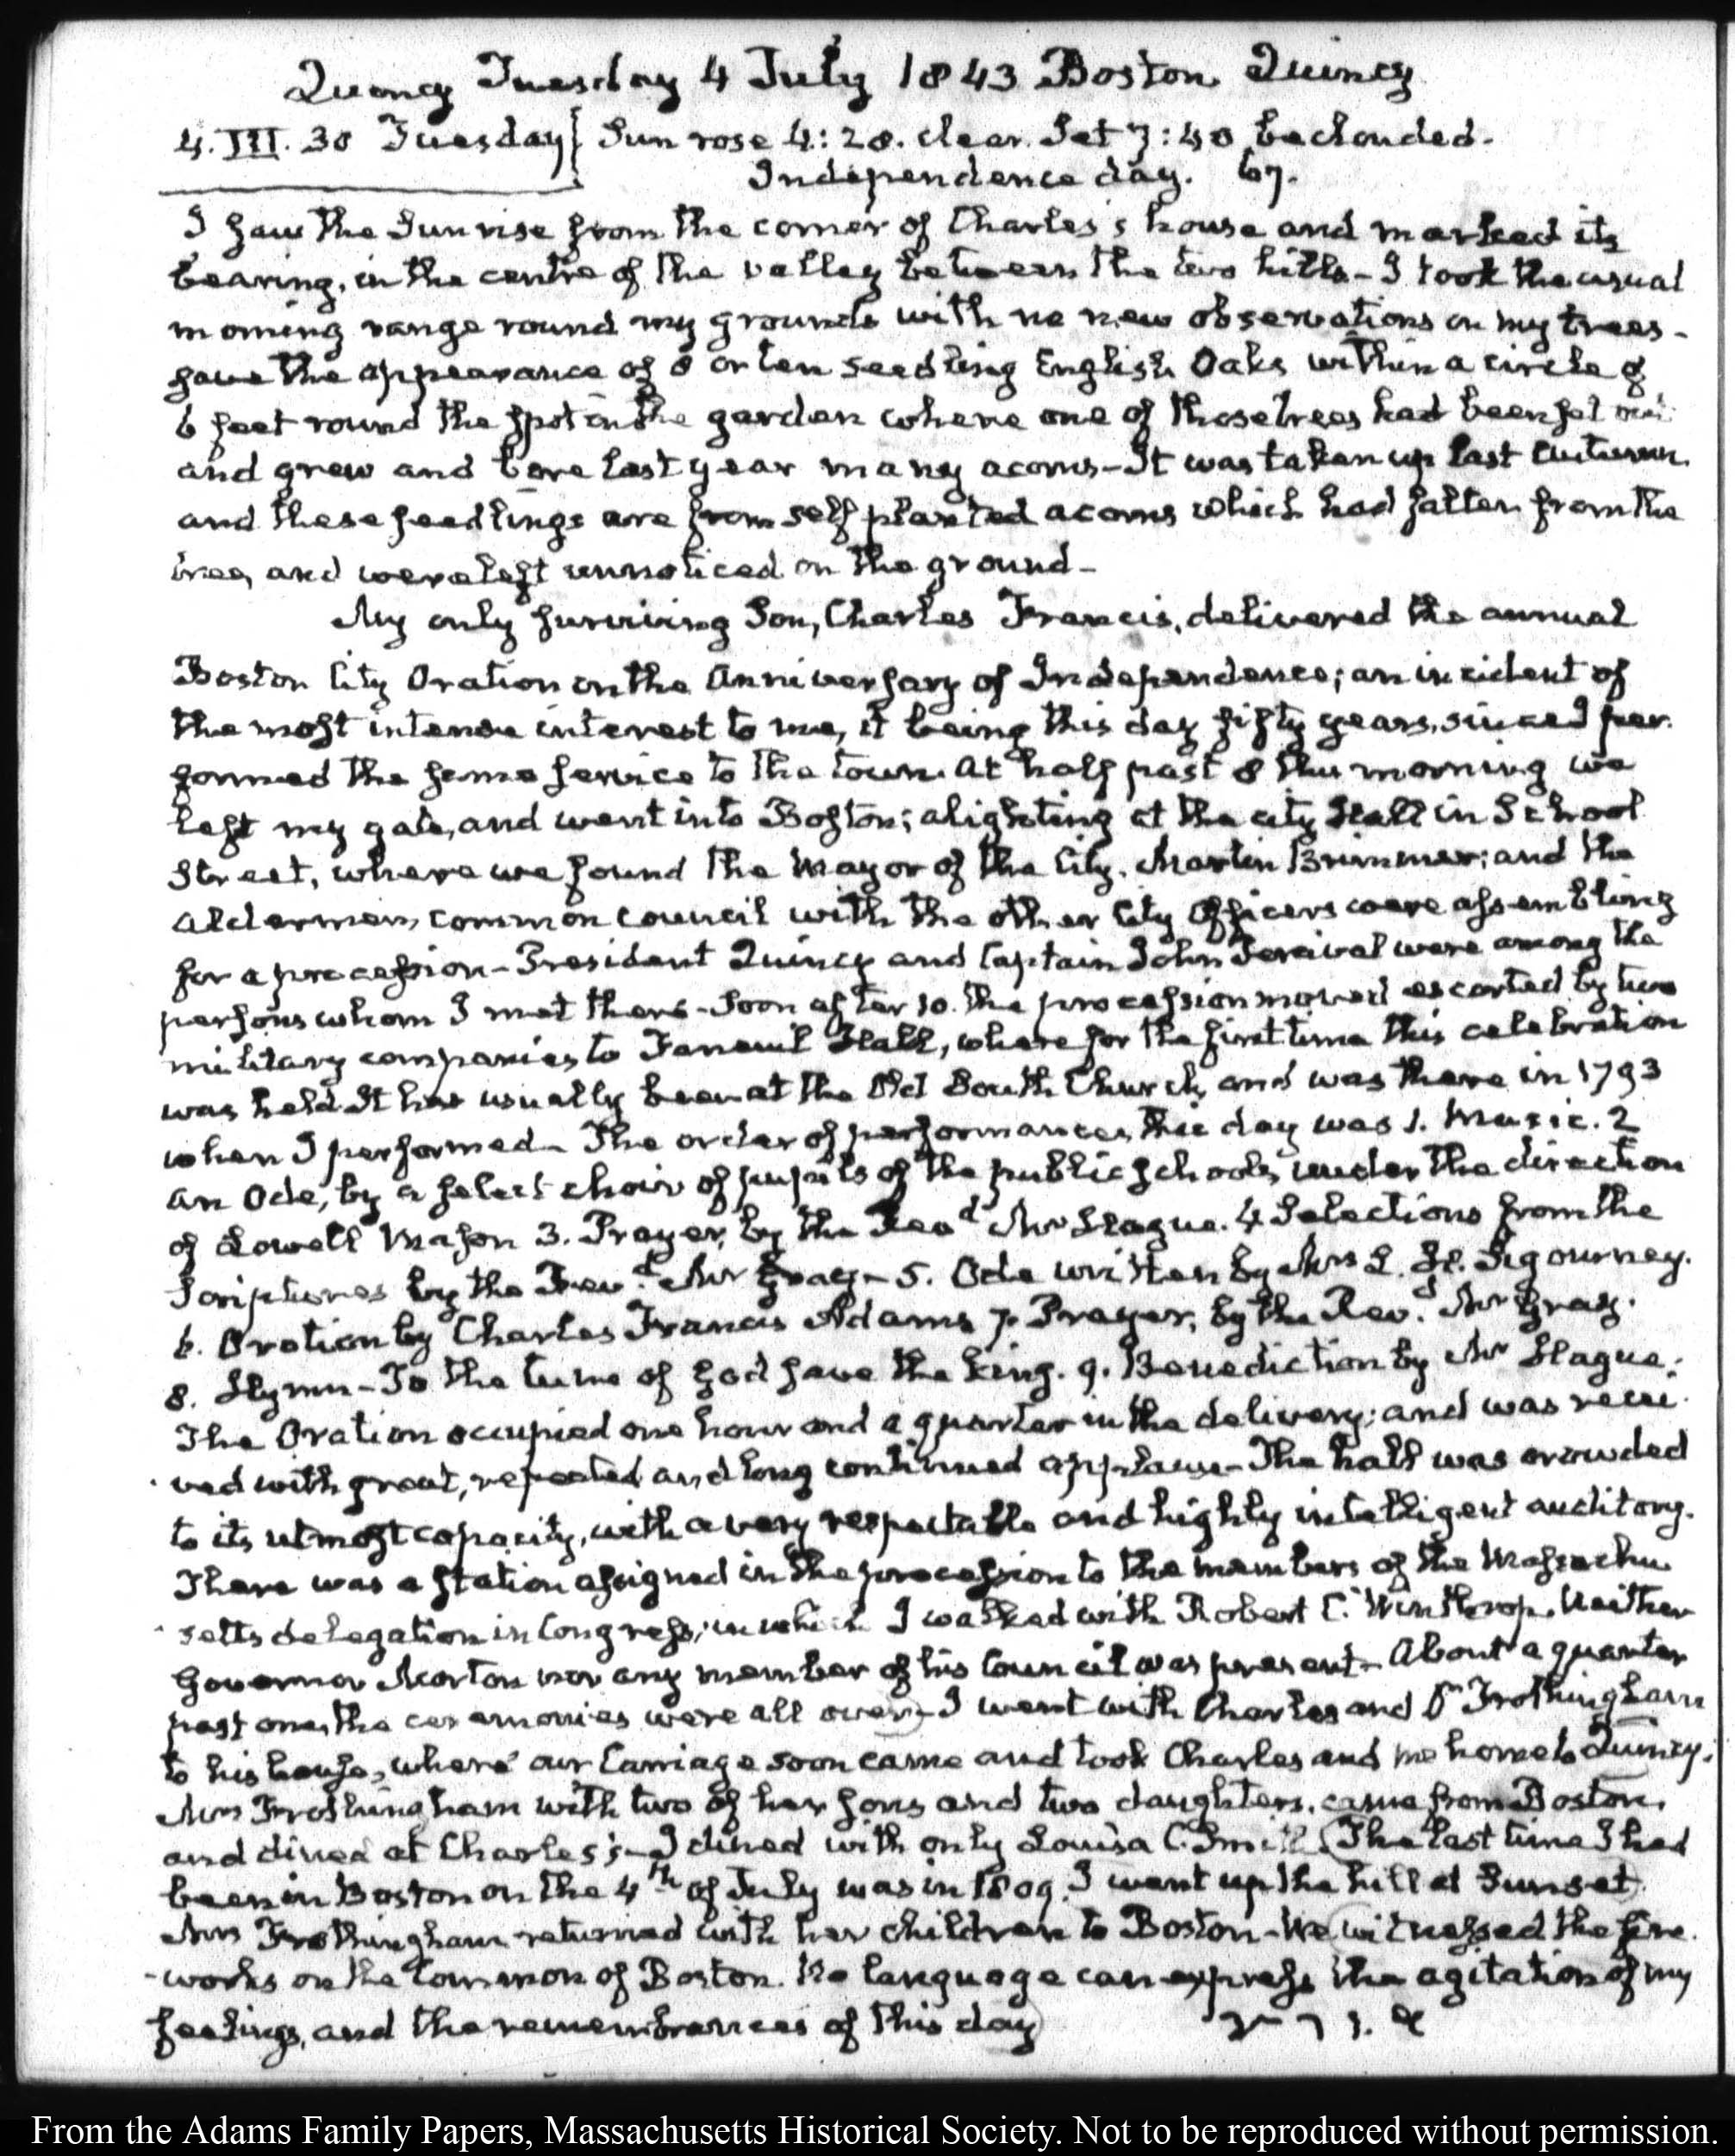 Quincy Tuesday 4 July 1843 Boston. Quincy
4. III. 30 Tuesday Sun rose 4:28. clear. Set 7:40 beclouded.
Independence day. 67.
I saw the Sun rise from the corner of Charles's house and marked its
bearing, in the centre of the valley between the two hills – I took the usual
morning range round my grounds with no new observations on my trees –
save the appearance of 8 or ten seedling English Oaks within a circle of
6 feet round the spot in the garden where one of those trees had been set out
and grew and bore last year many acorns – It was taken up last Autumn
and these seedlings are from self planted acorns which had fallen from the
tree, and were left unnoticed on the ground –
My only surviving Son, Charles Francis, delivered the annual
Boston City Oration on the Anniversary of Independence; an incident of
the most intense interest to me, it being this day fifty years, since I per-
formed the same service to the town. At half past 8 this morning we
left my gate, and went into Boston; alighting at the city Hall in School
Street, where we found the Mayor of the City. Martin Brimmer; and the
aldermen, common council with the other City Officers were assembling
for a procession – President Quincy and Captain John Percival were among the
persons whom I met there – Soon after 10. the procession moved escorted by two
military companies to Faneuil Hall, where for the first time this celebration
was held. It has usually been at the Old South Church, and was there in 1793
when I performed – The order of performances this day was 1. Music. 2
an Ode, by a select choir of pupils of the public schools, under the direction
of Lowell Mason 3. Prayer, by the Revd Mr Hague. 4 Selections from the
Scriptures by the Rev.d Mr Gray – 5. Ode written by Mrs L. H. Sigourney.
6. Oration by Charles Francis Adams 7. Prayer, by the Rev.d Mr Gray.
8. Hymn – To the tune of God save the King. 9. Benediction by Mr Hague.
The Oration occupied one hour and a quarter in the delivery; and was recei-
ved with great, repeated and long continued applause – The hall was crowded
to its utmost capacity, with a very respectable and highly intelligent auditory.
There was a station assigned in the procession to the members of the Massachu-
setts delegation in Congress; in which I walked with Robert C. Winthrop. Neither
Governor Morton nor any member of his Council was present – About a quarter
past one, the ceremonies were all over – I went with Charles and Dr Frothingham
to his house, where our Carriage soon came and took Charles and me home to Quincy.
Mrs Frothingham with two of her sons and two daughters, came from Boston,
and dined at Charles's – I dined with only Louisa C. Smith. The last time I had
been in Boston on the 4th of July was in 1809. I went up the hill at Sunset.
Mrs Frothingham returned with her children to Boston – We witnessed the fire-
works on the Common of Boston. No language can express the agitation of my
feelings, and the remembrances of this day
From the Adams Family Papers, Massachusetts Historical Society. Not to be reproduced without permission.